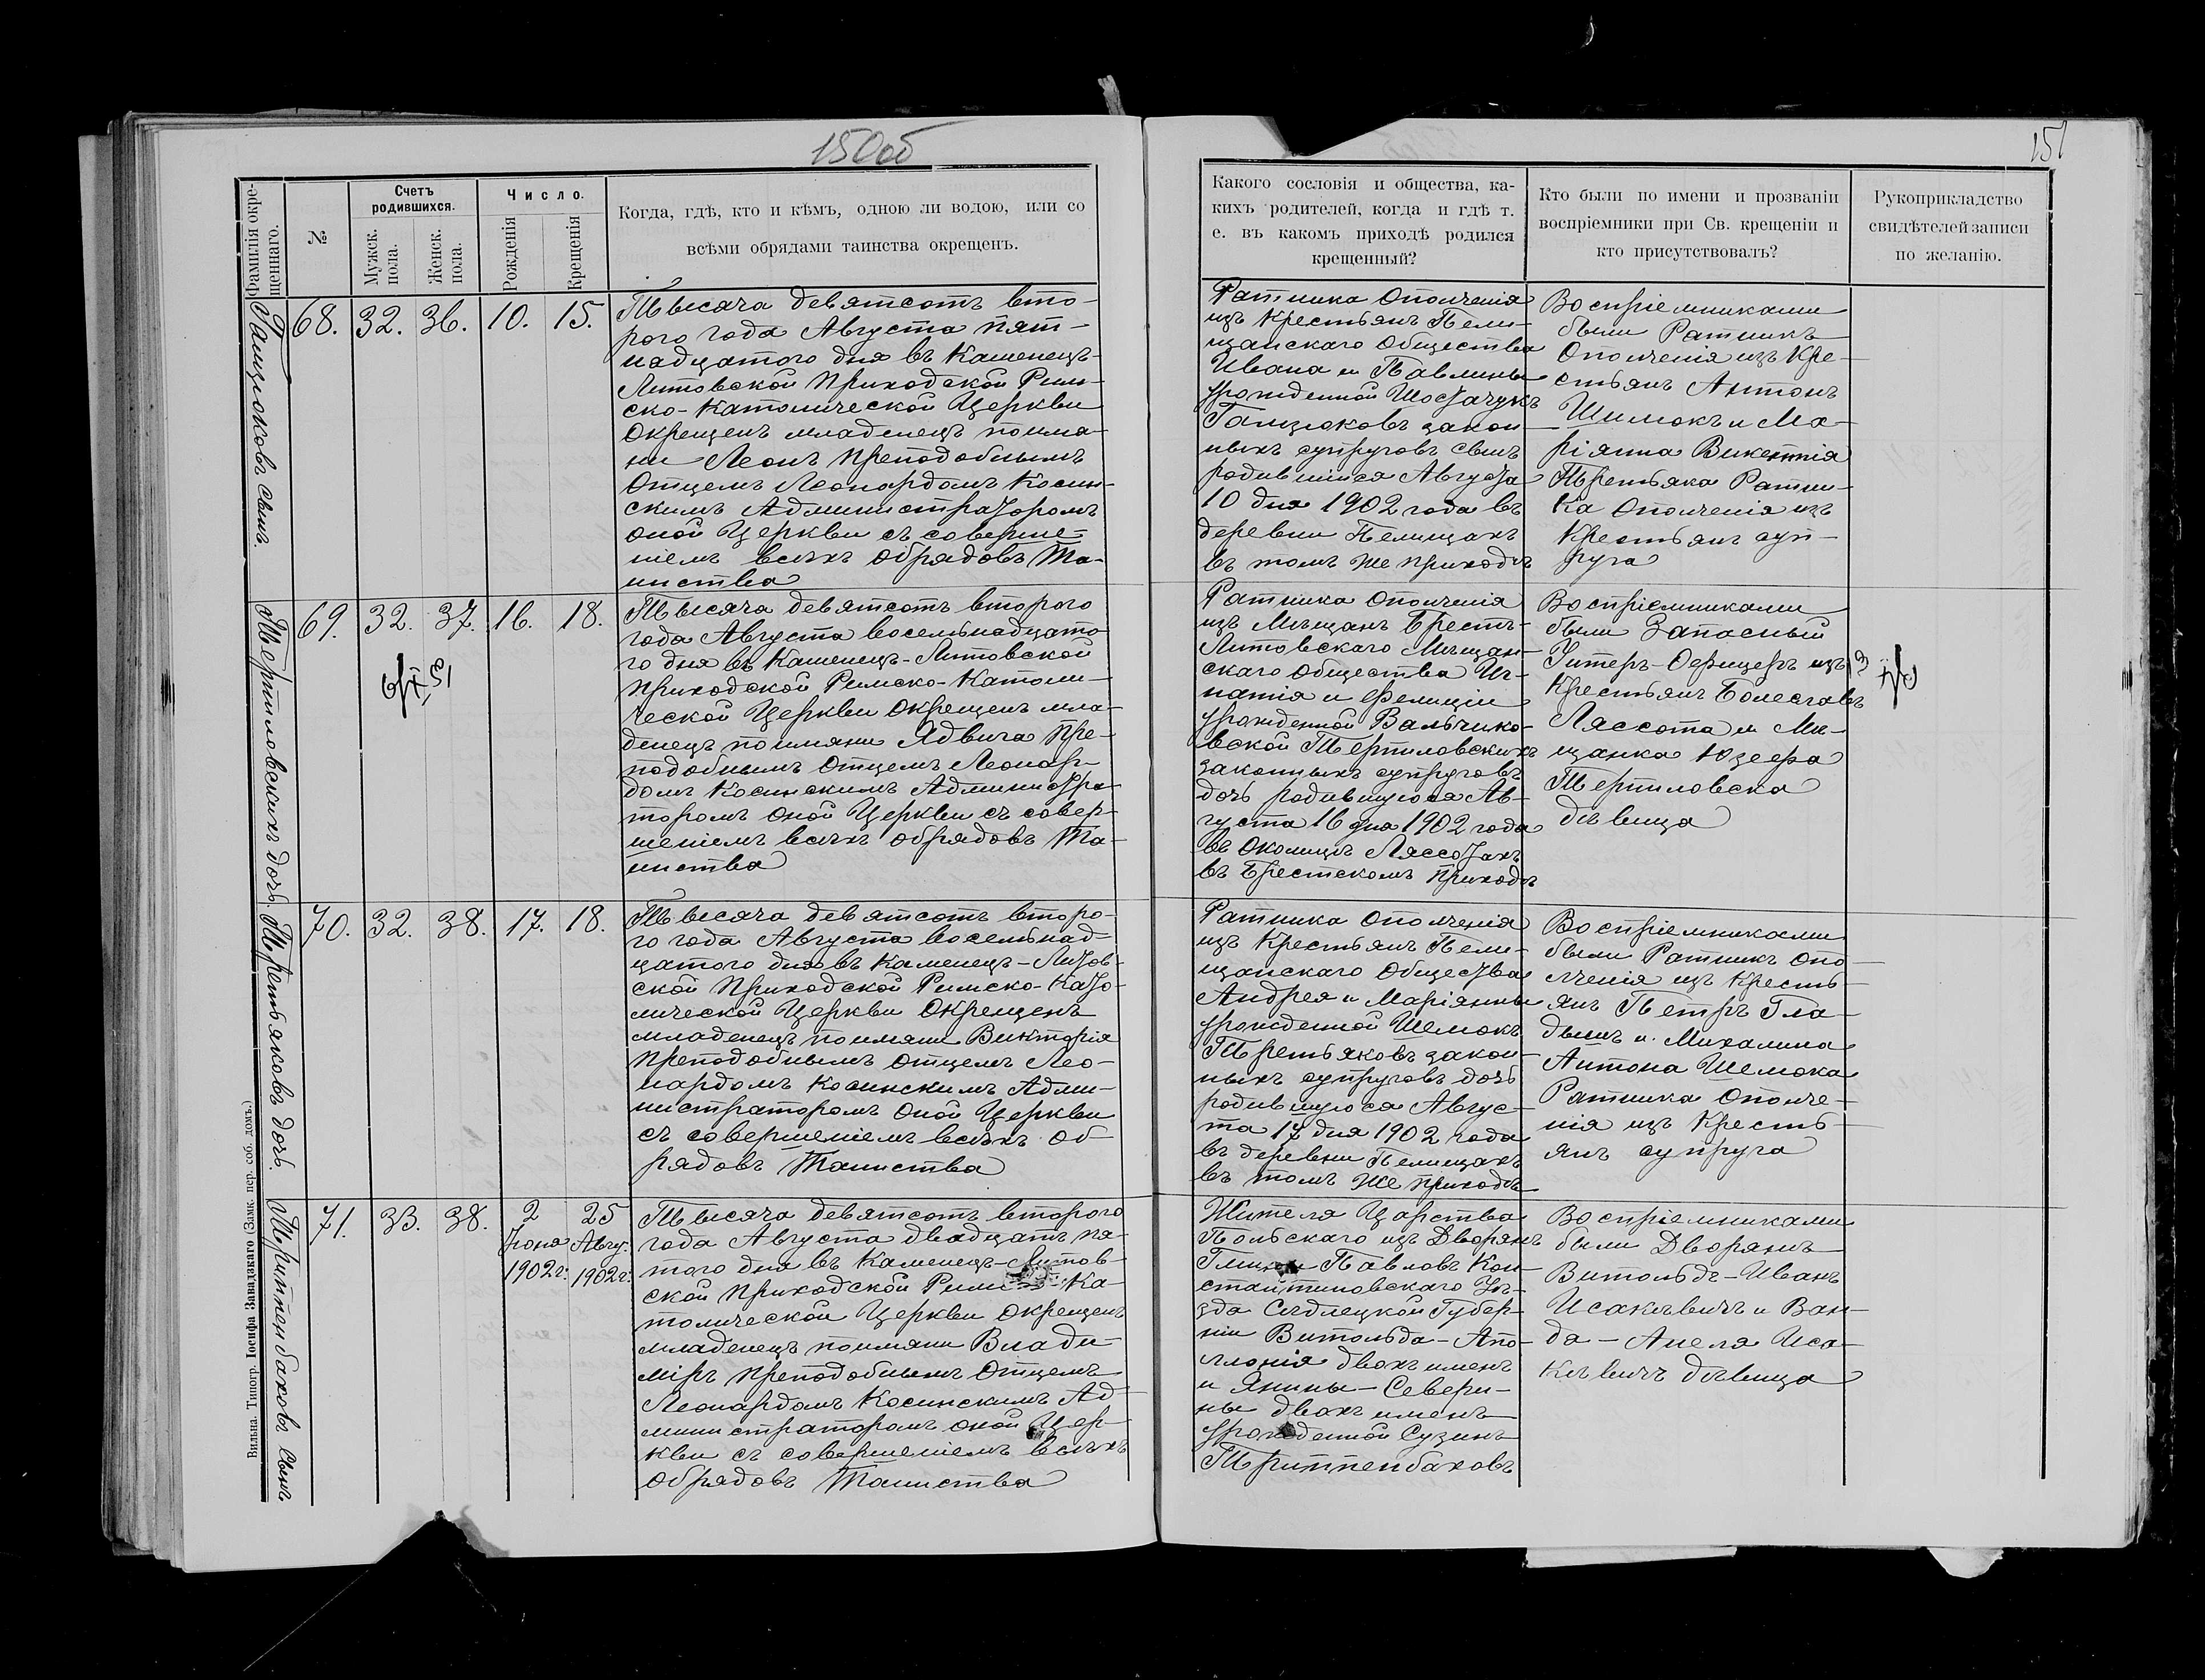 150об
Фамилія окре-
щеннаго.
№
Счетъ
родившихся.
Мужск.
пола.
Женск.
пола.
Число.
Рожденія
Крещенія
Когда, гдѣ, кто и кѣмъ, одною ли водою, или со
всѣми обрядами таинства окрещенъ.
Ганцюковъ сынъ.
68. 32. 36. 10. 15.
Тысяча девятсотъ вто-
рого года Августа пят-
надцатого дня въ Каменецъ-
Литовской Приходской Рим-
ско-Католической Церкви
Окрещенъ младенецъ поимя-
ни Леонъ Преподобнымъ
Отцемъ Леонардомъ Косин-
скимъ Администраторомъ
оной Церкви съ соверше-
ніемъ всѣхъ обрядовъ Та-
инства
Терпиловскихъ дочь.
69. 32. 37. 16. 18.
Тысяча девятсотъ второго
года Августа восемьнадцато
го дня въ Каменецъ-Литовской
Приходской Римско-Католи-
ческой Церкви Окрещен мла-
денецъ поимяни Ядвига Пре-
подобнымъ Отцемъ Леонар-
домъ Косинскимъ Администра-
торомъ оной Церкви съ совер-
шеніемъ всѣхъ обрядовъ Та-
инства
Третьяковъ дочь.
70. 32. 38. 17. 18.
Тысяча девятсотъ второ-
го года Августа восемьнад-
цатого дня въ Каменецъ-Литов-
ской Приходской Римско-Като-
лической Церкви Окрещенъ
младенецъ поимяни Викторія
Преподобнымъ Отцемъ Лео-
нардомъ Косинскимъ Адми-
нистраторомъ оной Церкви
съ совершеніемъ всѣхъ об-
рядовъ Таинства
Триппенбаховъ сынъ
71. 33. 38. 2 25
Іюня Авгу.
1902г. 1902г.
Тысяча девятсотъ второго
года Августа двадцать пя-
того дня въ Каменецъ-Литов-
ской Приходской Римско-Ка-
толической Церкви Окрещенъ
младенецъ поимяни Влади-
міръ Преподобнымъ Отцемъ
Леонардомъ Косинскимъ Ад
министраторомъ оной Цер-
кви съ совершеніемъ всѣхъ
обрядовъ Таинства
Вильна. Типогр. Іосифа Завадзкаго (Замк. пер. соб. домъ.)
151
Какого сословія и общества, ка-
кихъ родителей, когда и гдѣ т.
е. въ какомъ приходѣ родился
крещенный?
Кто были по имени и прозваніи
воспріемники при Св. крещеніи и
кто присутствовалъ?
Рукоприкладство
свидѣтелей записи
по желанію.
Ратника Ополченія
изъ Крестьянъ Пели-
щанскаго Общества
Ивана и Павлины
урожденной Шостачукъ
Ганцюковъ закон-
ныхъ супруговъ сынъ
родившійся Августа
10 дня 1902 года въ
деревни Пелищахъ
въ томъ же приходѣ
Воспріемниками
были Ратникъ
Ополченія изъ Кре-
стьянъ Антонъ
Шимокъ и Ма-
ріянна Викентія
Третьяка Ратни-
ка Ополченія изъ
Крестьянъ суп-
руга
Ратника Ополченія
изъ Мѣщанъ Брестъ-
Литовскаго Мѣщан-
скаго Общества Иг-
натія и Фелиціи
урожденной Вальчико-
вской Терпиловскихъ
законныхъ супруговъ
дочь родившуюся Ав-
густа 16 дня 1902 года
въ Околицѣ Ляссотахъ
въ Брестскомъ приходѣ
Воспріемниками
были Запасный
Унтеръ-Офицеръ изъ
Крестьянъ Болеславъ
Ляссота и Мѣ-
щанка Юзефа
Терпиловска
дѣвица
Ратника Ополченія
изъ Крестьянъ Пели-
щанскаго Общества
Андрея и Маріянны
урожденной Шемокъ
Третьяковъ закон-
ныхъ супруговъ дочь
родившуюся Авгус-
та 17 дня 1902 года
въ деревни Пелищахъ
въ томъ же приходѣ
Воспріемниками
были Ратникъ Опо-
лченія изъ Кресть-
янъ Петръ Гла-
дышъ и Михалина
Антона Шемока
Ратника Ополче-
нія изъ Кресть-
янъ супруга
Жителя Царства
Польскаго изъ Дворянъ
Павловъ Кон-
стантиновскаго Уѣ-
зда Сѣдлецкой Губер-
ніи Витольда-Апо-
ллонія двохъ именъ
и Янины-Севери-
ны двохъ именъ
урожденной Сузинъ
Триппенбаховъ
Воспріемниками
были Дворянъ
Витольдъ-Иванъ
Исакѣвичъ и Ван-
да-Анеля Иса-
кѣвичъ дѣвица